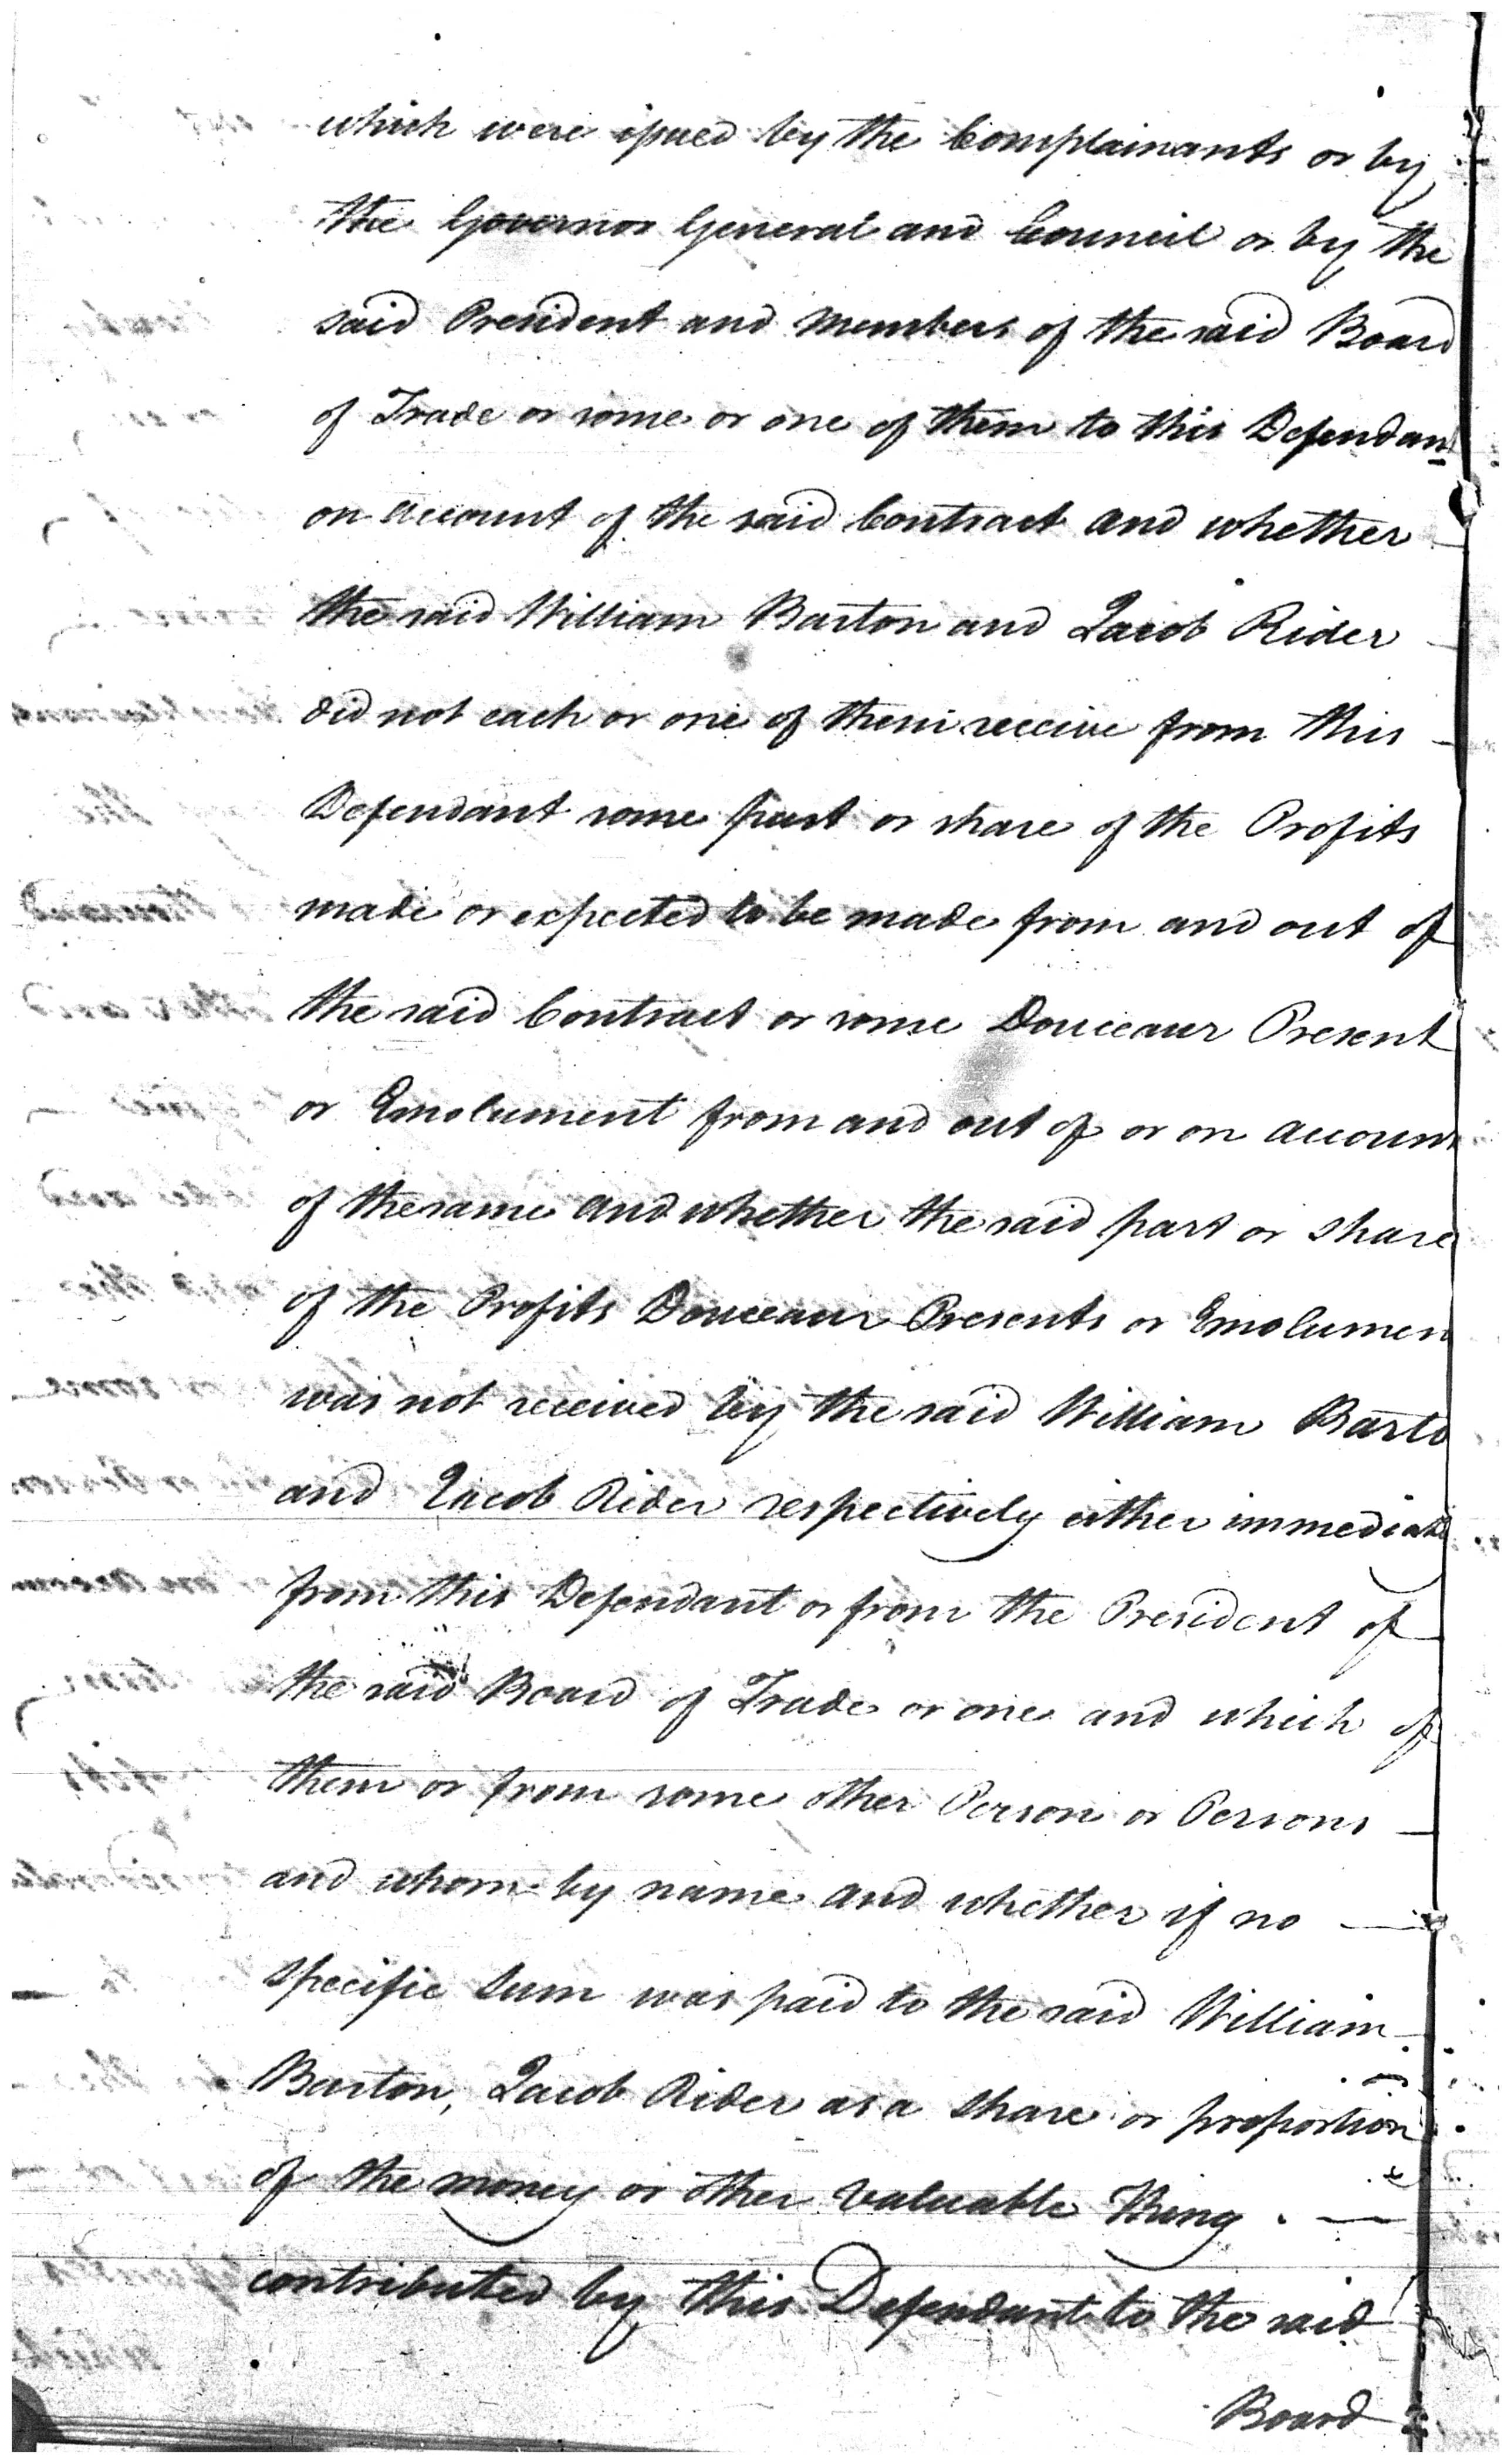 which were issued by the Complainants or by
the Governor General and Council or by the
said President and Members of the said Board
of Trade or some or one of them to this Defendan
on account of the said Contract and whether
the said William Barton and Jacob Rider
did not each or one of them receive from this
Defendant some part or share of the Profits
made or expected to be made from and out of
the said Contract or some Douceaur Present
or Emolument from and out of or on account
of the same and whether the said part or share
of the Profits Douceaur Presents or Emolumen
was not received by the said William Barto
and Jacob Rider respectively either immediate
from this Defendant or from the President of
the said Board of Trade or one and which of
them or from some other Person or Persons
and whom by name and whether if no
specific sum was paid to the said William
Barton, Jacob Rider as a share or proportion
of the money or other valuable thing
contributed by this Defendant to the said
Board